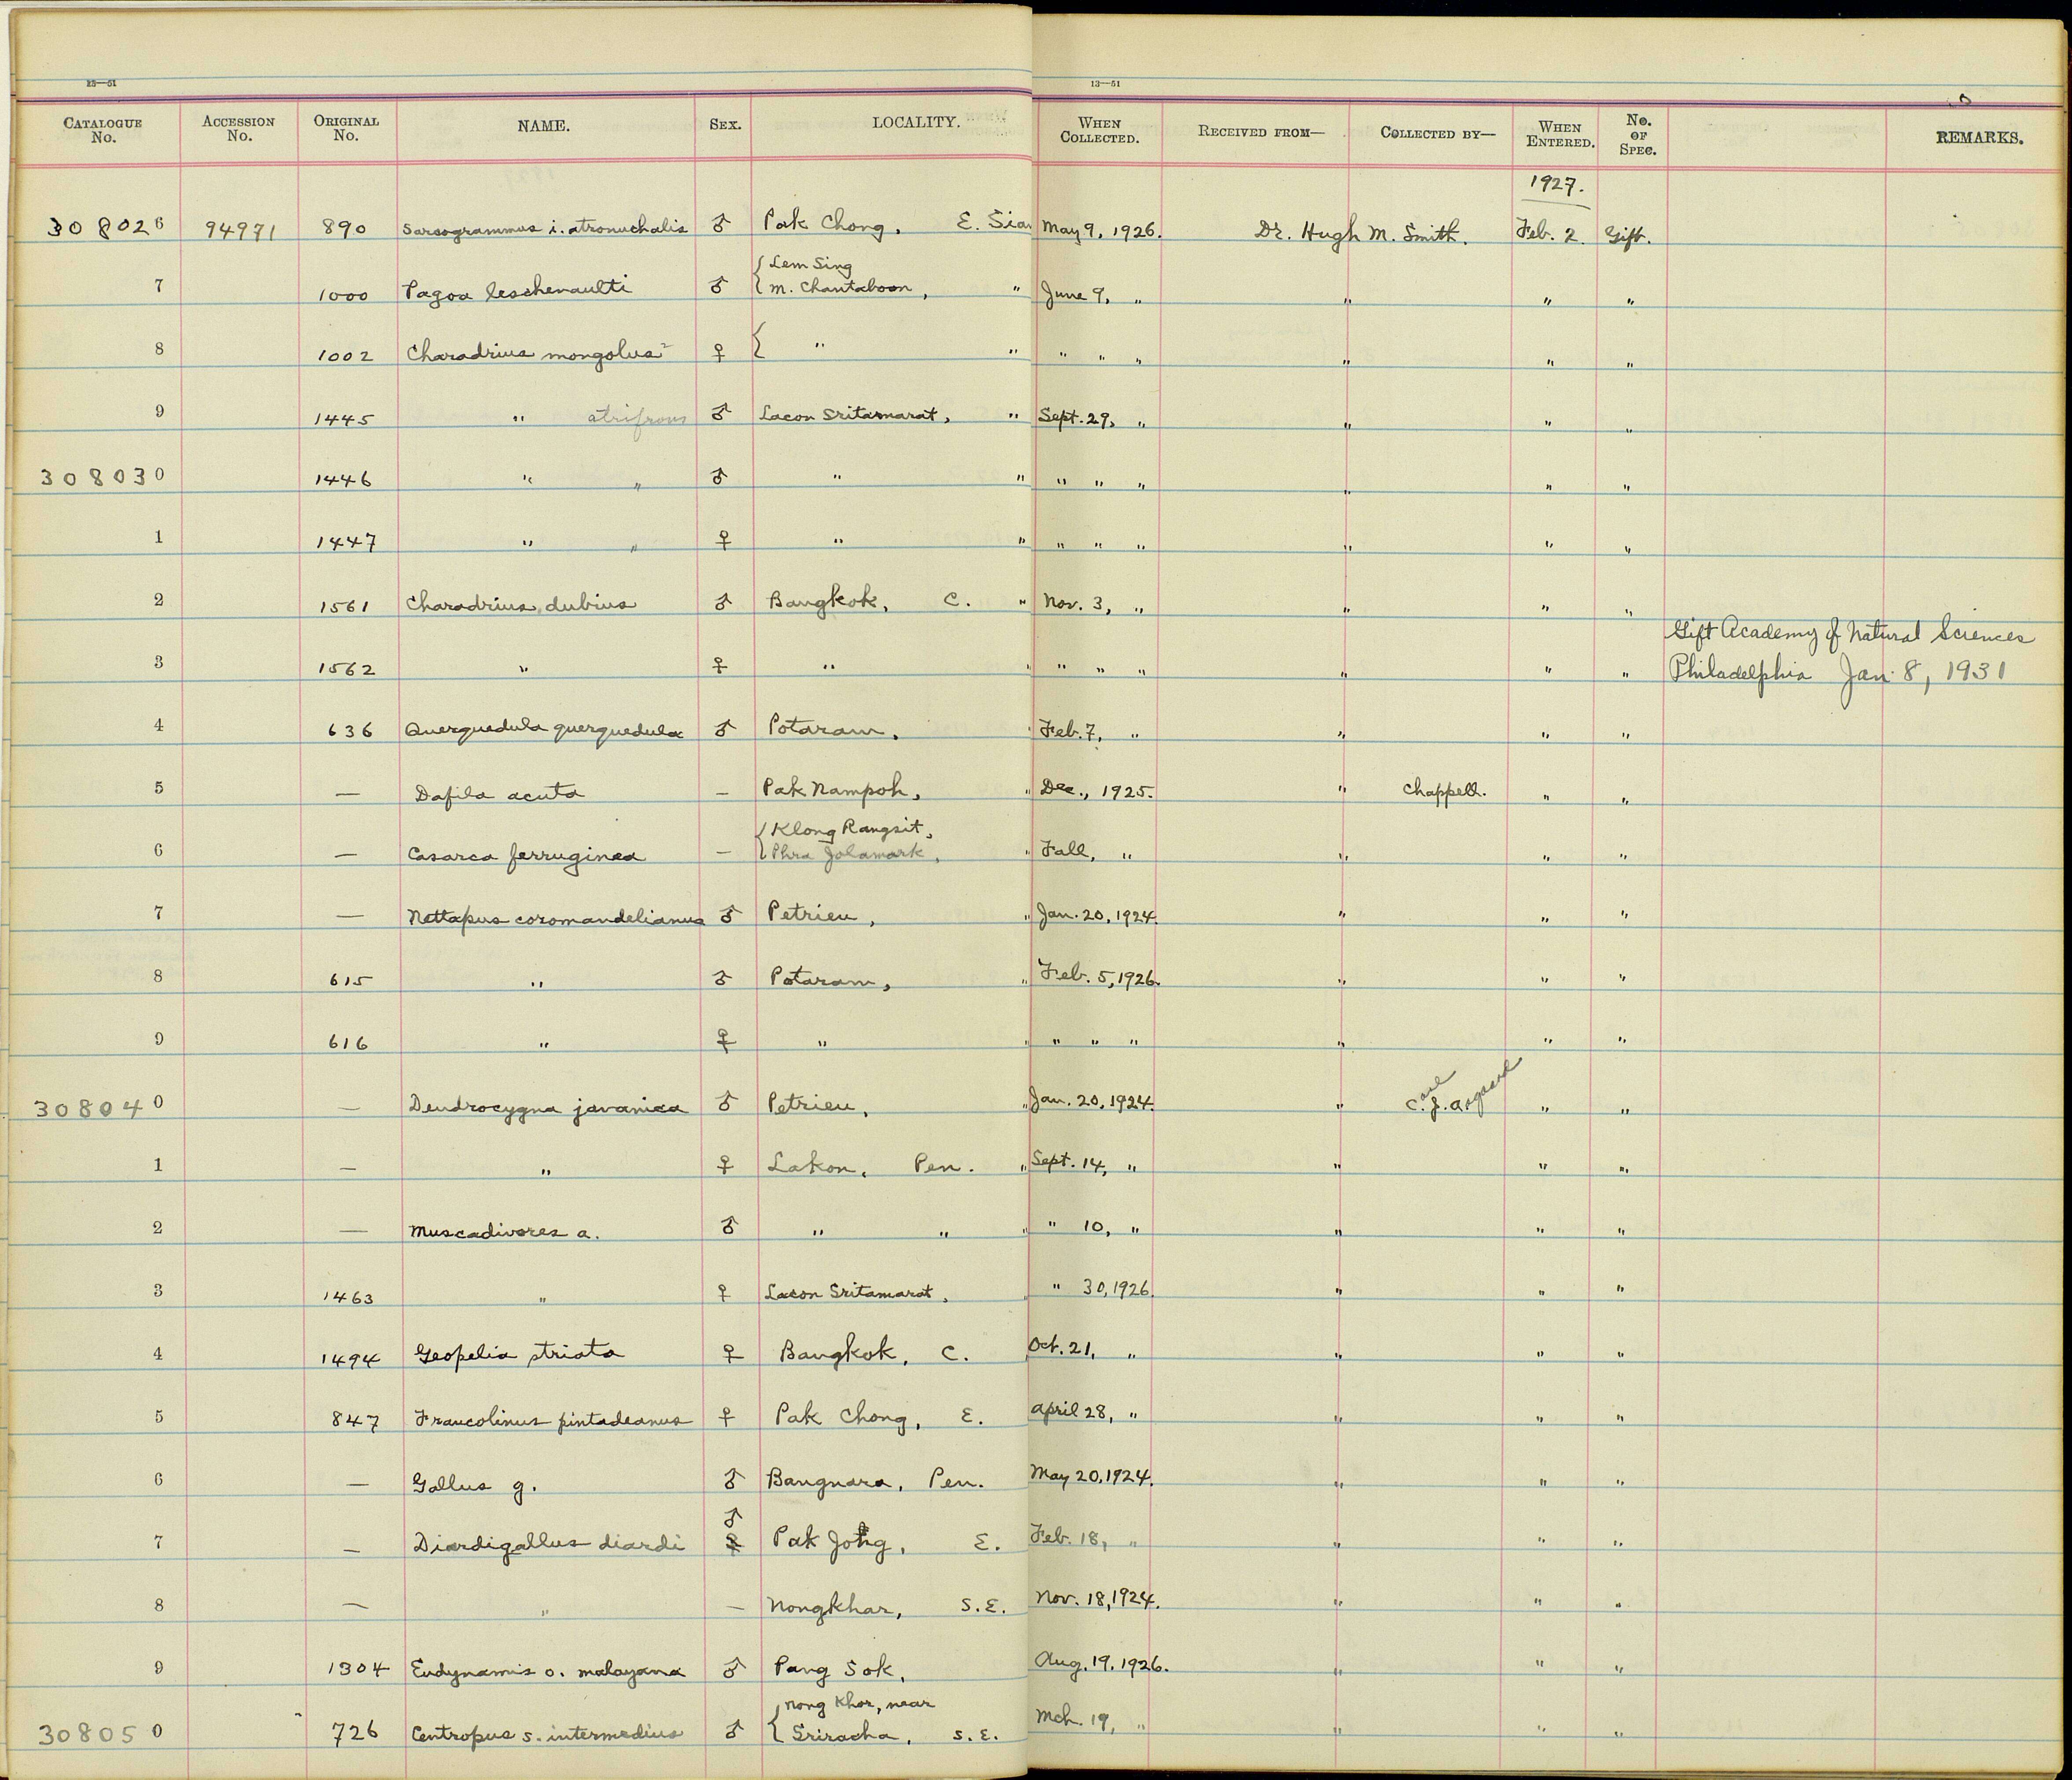 25—51 13—51
CATALOGUE No. ACCESSION No. ORIGINAL No. NAME. SEX. LOCALITY. WHEN COLLECTED. RECEIVED FROM— COLLECTED BY— WHEN ENTERED. No. OF SPEC. REMARKS.
1927.
308026 94971 890 Sarcogrammus i. atronuchalis ♂ Pak Chong, E. Siam May 9, 1926. Dr. Hugh M. Smith. Feb. 2. Gift.
{ Lem Sing
7 1000 Pagoa leschenaulti ♂ { M. Chantaboon, " June 9, " " " "
8 1002 Charadrius mongolus ♀ { " " " " " " " "
9 1445 " atrifrons ♂ Lacon Sritamarat, " Sept. 29, " " " "
308030 1446 " " ♂ " " " " " " " "
1 1447 " " ♀ " " " " " " " "
2 1561 Charadrius dubius ♂ Bangkok, C. " Nov. 3, " " " "
Gift Academy of Natural Sciences
3 1562 " ♀ " " " " " " " " Philadelphia Jan. 8, 1931
4 636 Querquedula querquedula ♂ Potaram, " Feb. 7, " " " "
5 — Dafila acuta — Pak Nampoh, " Dec., 1925. " Chappell. " "
{ Klong Rangsit,
6 — Casarca ferruginea — { Phra Jolamark, " Fall, " " " "
7 — Nettapus coromandelianus ♂ Petrieu, " Jan. 20, 1924. " " "
8 615 " ♂ Potaram, " Feb. 5, 1926. " " "
9 616 " ♀ " " " " " " " "
308040 — Dendrocygna javanica ♂ Petrieu, " Jan. 20, 1924. " C. J. Aagaard " "
1 — " ♀ Lakon, Pen. " Sept. 14, " " " "
2 — Muscadivores a. ♂ " " " " 10, " " " "
3 1463 " ♀ Lacon Sritamarat, " 30, 1926. " " "
4 1494 Geopelia striata ♀ Bangkok, C. Oct. 21, " " " "
5 847 Francolinus pintadeanus ♀ Pak Chong, E. April 28, " " " "
6 — Gallus g. ♂ Bangnara, Pen. May 20, 1924. " " "
♂
7 — Diardigallus diardi ♀ Pak Jong, E. Feb. 18, " " " "
8 — " — Nongkhar, S.E. Nov. 18, 1924. " " "
9 1304 Eudynamis o. malayana ♂ Pang Sok, Aug. 19, 1926. " " "
{ Nong Khor, near
308050 726 Centropus s. intermedius ♂ { Sriracha, S.E. Mch. 19, " " " "